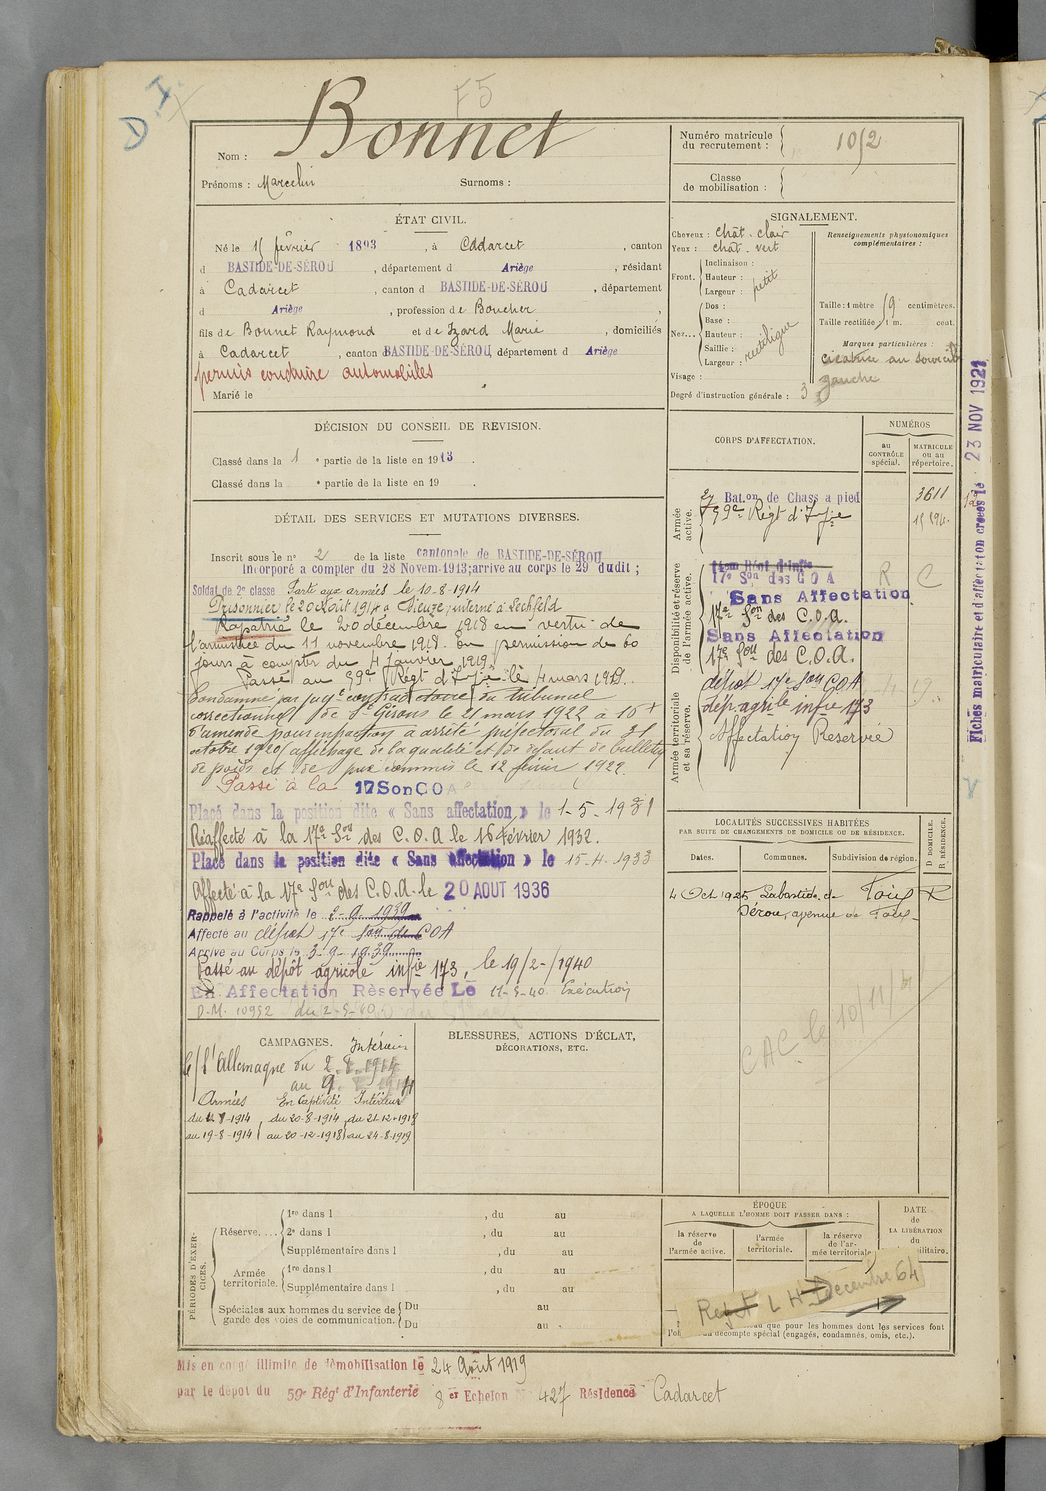 F5
D I
Bonnet
Nom :
Prénoms : Marcelin Surnoms :
ÉTAT CIVIL.
Né le 15 février 1893 , à Cadarcet , canton
d BASTIDE-DE-SÉROU , département d Ariège , résidant
à Cadarcet , canton d BASTIDE-DE-SÉROU , département
d Ariège , profession de Boucher ,
fils de Bonnet Raymond et de Izard Marie , domiciliés
à Cadarcet , canton BASTIDE-DE-SÉROU, département d Ariège
permis conduire automobiles
Marié le
DÉCISION DU CONSEIL DE REVISION.
Classé dans la 1 e partie de la liste en 1913 .
Classé dans la e partie de la liste en 19 .
DÉTAIL DES SERVICES ET MUTATIONS DIVERSES.
Inscrit sous le n° 2 de la liste cantonale de BASTIDE-DE-SÉROU
Incorporé a compter du 28 Novem.1913;arrive au corps le 29 dudit ;
Soldat de 2e classe Parti aux armées le 10-8-1914
Prisonnier le 20 Août 1914 à Dieuze, interné à Lechfeld
Rapatrié le 20 décembre 1918 en vertu de
l'armistice du 11 novembre 1918. En permission de 60
jours à compter du 4 Janvier 1919.
Passé au 59e Régt d'Infie le 4 mars 1919.
Condamné par jugt contradictoire du tribunal
correctionnel de St Girons le 21 mars 1922 à 16 +
d'amende pour infraction à arrêté préfectoral du 31
octobre 1920 (affichage de la qualité et de défaut de bulletin
de poids et de prix commis le 12 février 1922.
Passé à la 17SonCOA
Placé dans la position dite « Sans affectation » le 1-5-1931
Réaffecté à la 17e Son des C.O.A le 16 Février 1932.
Placé dans la position dite « Sans affectation » le 15-4-1933
Affecté à la 17e Son des C.O.A. le 20 AOUT 1936
Rappelé à l'activité le 2-9-1939
Affecté au dépôt 17e Son de COA
Arrivé au Corps le 3-9-1939
Passé au dépôt agricole infie 173, le 19/2-/1940
En Affectation Rèservée Le 11-5-40 Exécution
D.M. 10952 du 2-5-40
CAMPAGNES. Intérieur
C/ l'Allemagne du 2-8-1914
au 9-8-1914
Armées En Captivité Intérieur
du 4-8-1914 , du 20-8-1914 , du 21-12-1918
au 19-8-1914 au 20-12-1918 au 24-8-1919
BLESSURES, ACTIONS D'ÉCLAT,
DÉCORATIONS, ETC.
PÉRIODES D'EXERCICES.
Réserve....
1re dans l , du au
2e dans l , du au
Supplémentaire dans l , du au
Armée territoriale.
1re dans l , du au
Supplémentaire dans l , du au
Spéciales aux hommes du service de garde des voies de communication.
Du au
Du au
Mis en congé illimité de démobilisation le 24 Août 1919
par le dépôt du 59e Régt d'Infanterie 8 er Echelon N° 427 Résidence Cadarcet
Numéro matricule
du recrutement : 1012
Classe
de mobilisation :
SIGNALEMENT.
Cheveux : chât. clair
Yeux : chât. vert
Front.
Inclinaison :
Hauteur : petit
Largeur :
Nez...
Dos :
Base :
Hauteur : rectiligne
Saillie :
Largeur :
Visage :
Degré d'instruction générale : 3
Renseignements physionomiques
complémentaires :
Taille : 1 mètre 19 centimètres.
Taille rectifiée : 1 m. cent.
Marques particulières :
cicatrice au sourcil
gauche
Fiches matriculaire et d'affectation créées le 23 NOV 1921
CORPS D'AFFECTATION.
NUMÉROS
au
CONTRÔLE
spécial.
MATRICULE
ou au
répertoire.
Armée active.
27 Bat.on de Chass a pied 3611
59e Régt d'Infie
Disponibilité et réserve de l'armée active.
17e Son des COA R C
Sans Affectation
17e Son des C.O.A.
Sans Affectation
17e Son des C.O.A.
Armée territoriale et sa réserve.
dépôt 17e Son COA
dép. agrile infie 173
Affectation Reservée
LOCALITÉS SUCCESSIVES HABITÉES
PAR SUITE DE CHANGEMENTS DE DOMICILE OU DE RÉSIDENCE.
Dates. Communes. Subdivision de région. D DOMICILE. R RÉSIDENCE.
4 Oct 1925 Labastide de Foix R
Sérou, avenue de Foix
CAC le 10/11/
ÉPOQUE
A LAQUELLE L'HOMME DOIT PASSER DANS :
la réserve
de
l'armée active.
l'armée
territoriale.
la réserve
de l'ar-
mée territoriale
DATE
de
LA LIBÉRATION
du
militaire.
Rej F L H Decembre 64
que pour les hommes dont les services font
décompte spécial (engagés, condamnés, omis, etc.).